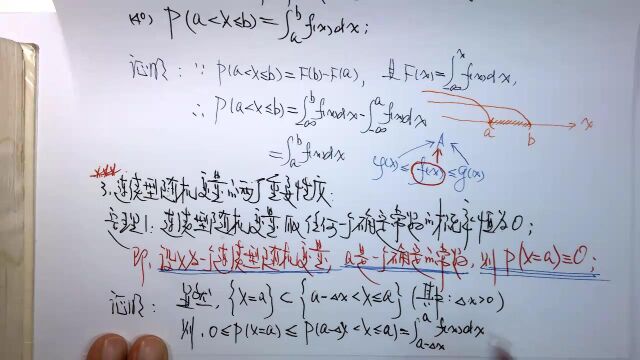 (4) P(a<X≤b)=∫_a^b f(x)dx;
证明: ∵ P(a<X≤b)=F(b)-F(a), 且 F(x)=∫_{-∞}^x f(x)dx,
∴ P(a<X≤b)=∫_{-∞}^b f(x)dx-∫_{-∞}^a f(x)dx
=∫_a^b f(x)dx
a b x
A
φ(x)≤f(x)≤g(x)
***
3. 连续型随机变量的两个重要性质:
定理1: 连续型随机变量取任何一个确定常数的概率恒为0;
即: 设X为一个连续型随机变量, a是一个确定的常数, 则 P(X=a)=0;
证明: 显然, {X=a}⊂{a-Δx<X≤a} (其中: Δx>0)
则, 0≤P(X=a)≤P(a-Δx<X≤a)=∫_{a-Δx}^a f(x)dx